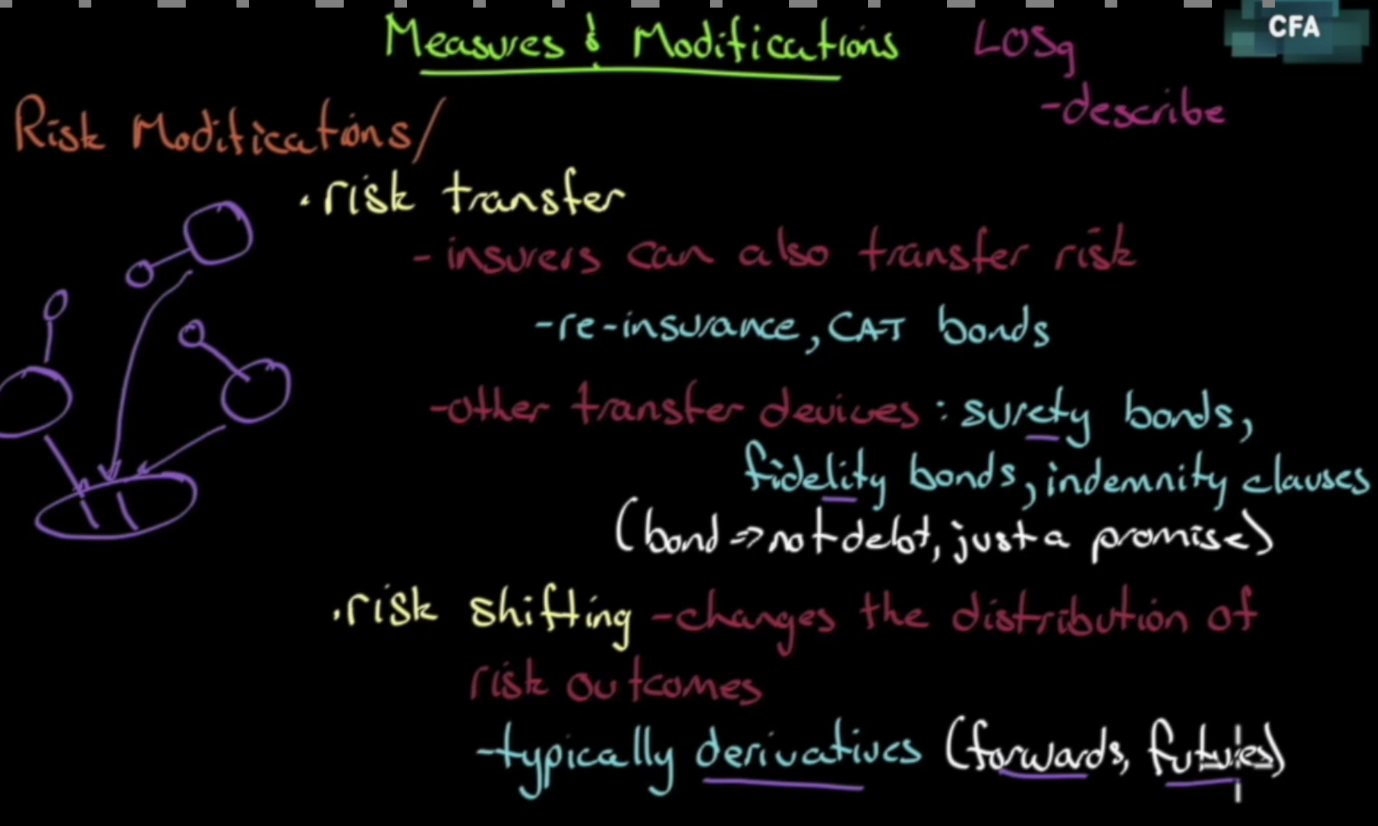 Measures & Modifications LOSg
CFA
-describe
Risk Modifications/
. risk transfer
- insurers can also transfer risk
-re-insurance, CAT bonds
-other transfer devices: surety bonds,
fidelity bonds, indemnity clauses
(bond => not debt, just a promise)
. risk shifting - changes the distribution of
risk outcomes
-typically derivatives (forwards, futures)